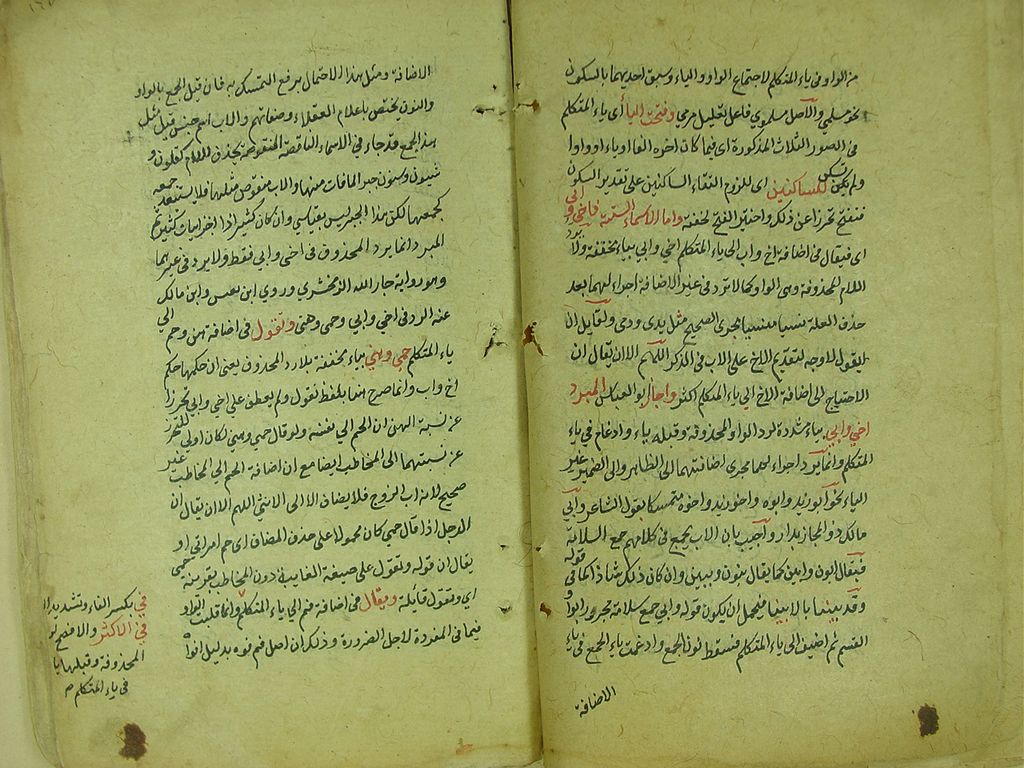 من الواو في ياء المتكلم لاجتماع الواو والياء وسبق احديهما بالسكون
نحو مسلمي والاصل مسلموي فاعل تعليل مرمي وفتحت الياء اى ياء المتكلم
في الصور الثلاث المذكورة اى فيما كان اخره الفا او ياء او واوا
ولم يكن للساكنين اى للزوم التقاء الساكنين على تقدير السكون
ففتح تحرزا عن ذلك واختير الفتح لخفته واما الاسماء الستة فاخي وابي
اى فيقال في اضافة اخ واب الى ياء المتكلم اخي وابي بياء مخففة ولا يرد
اللام المحذوفة وهي الواو كما لا يرد في غير الاضافة اجراء لهما بعد
حذف العلة نسيا منسيا مجرى الصحيح مثل يدي ودمي ولقايل ان
يقول لا وجه لتقديم الاخ على الاب في الذكر اللهم الا ان يقال ان
الاحتياج الى اضافة الاخ الى ياء المتكلم اكثر واجاز ابو العباس المبرد
اخي وابي بياء مشددة لرد الواو المحذوفة وقبله ياء وادغام في ياء
المتكلم وانما يرد اجراء لهما مجرى اضافتهما الى الظاهر والى الضمير غير
الياء نحو ابو زيد وابوه واخو زيد واخوه متمسكا بقول الشاعر وابي
مالك ذو المجاز بدار واجيب بان الاب يجمع في كلامهم جمع السلامة
فيقال ابون وابين كما يقال بنون وبنين وان كان ذلك شاذا كما في قوله
وفديننا بالابينا فيحتمل ان يكون قوله وابي جمع سلامة مجرور بواو
القسم ثم اضيف الى ياء المتكلم فسقط نون الجمع وادغمت ياء الجمع في ياء
الاضافة
الاضافة ومثل هذا الاحتمال يرفع التمسك به فان قيل الجمع بالواو
والنون يختص باعلام العقلاء وصفاتهم والاب اسم جنس قيل مثل
هذا الجمع قد جاء في الاسماء الناقصة المنقوصة بحذف اللام كقلون و
ثبون وسنون جبرا لما فات منها والاب منقوص مثلها فلا يستبعد جمعه
كجمعها لكن هذا الجبر ليس بقياسي وان كان كثيرا اذا
المبرد انما يرد المحذوف في اخي وابي فقط ولا يرد في غيرهما
وهو رواية جار الله الزمخشري وروى ابن يعيش وابن مالك
عنه الرد في اخي وابي وحمي وهني وتقول في اضافة هن وحم الى
ياء المتكلم حمي وهني بياء مخففة بلا رد المحذوف يعني ان حكمها حكم
اخ واب وانما صرح هنا بلفظ تقول ولم يعطف على اخي وابي تحرزا
عن نسبة الهن ان الحم الى نفسه ولو قال حمي وهني لكان اولى للتحرز
عن نسبتهما الى المخاطب ايضا مع ان اضافة الحم الى المخاطب غير
صحيح لانه اب الزوج فلا يضاف الا الى الانثى اللهم الا ان يقال ان
الرجل اذا قال حمي كان محمولا على حذف المضاف اى حم امراتي او
يقال ان قوله وتقول على صيغة الغايبة دون المخاطب بقرينة حمي
اى وتقول قايلة ويقال في اضافة فم الى ياء المتكلم وانما قلبت الواو
فيما في المفردة لاجل الضرورة وذلك ان اصل فم فوه بدليل افواه
في بكسر الفاء وتشديد الياء
في الاكثر والافصح
المحذوفة وقبلها يا
في ياء المتكلم م